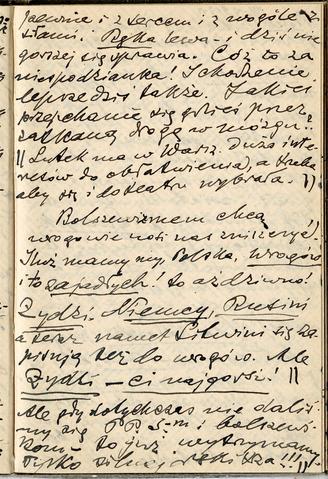 i z sercem i z wogóle z
siłami. Ręka lewa - i dziś nie
gorzej się sprawia. Cóż to za
niespodzianka! I chodzenie
lepsze dziś także. Jakieś
przepchanie się gdzieś przez
zatkaną drogę w mózgu..
|| Lutek ma w Warsz. Dużo inte-
resów do obłatwienia), a trzeba
aby się i do teatru wybrała. ||
Bolszewizmem chcą
wrogowie nasi nas zniszczyć!
I też mamy my, Polska, wrogów
i to zajadłych! to aż dziwno!
Żydzi, Niemcy, Rusini
a teraz nawet Litwini się za-
pisują też do wrogów. Ale
Żydki - ci najgorsi! ||
Ale gdy dotychczas nie daliś-
my się P.P.S-om i bolszewi-
kom - to już wytrzymamy.
Tylko silnej ręki trza!!! ||